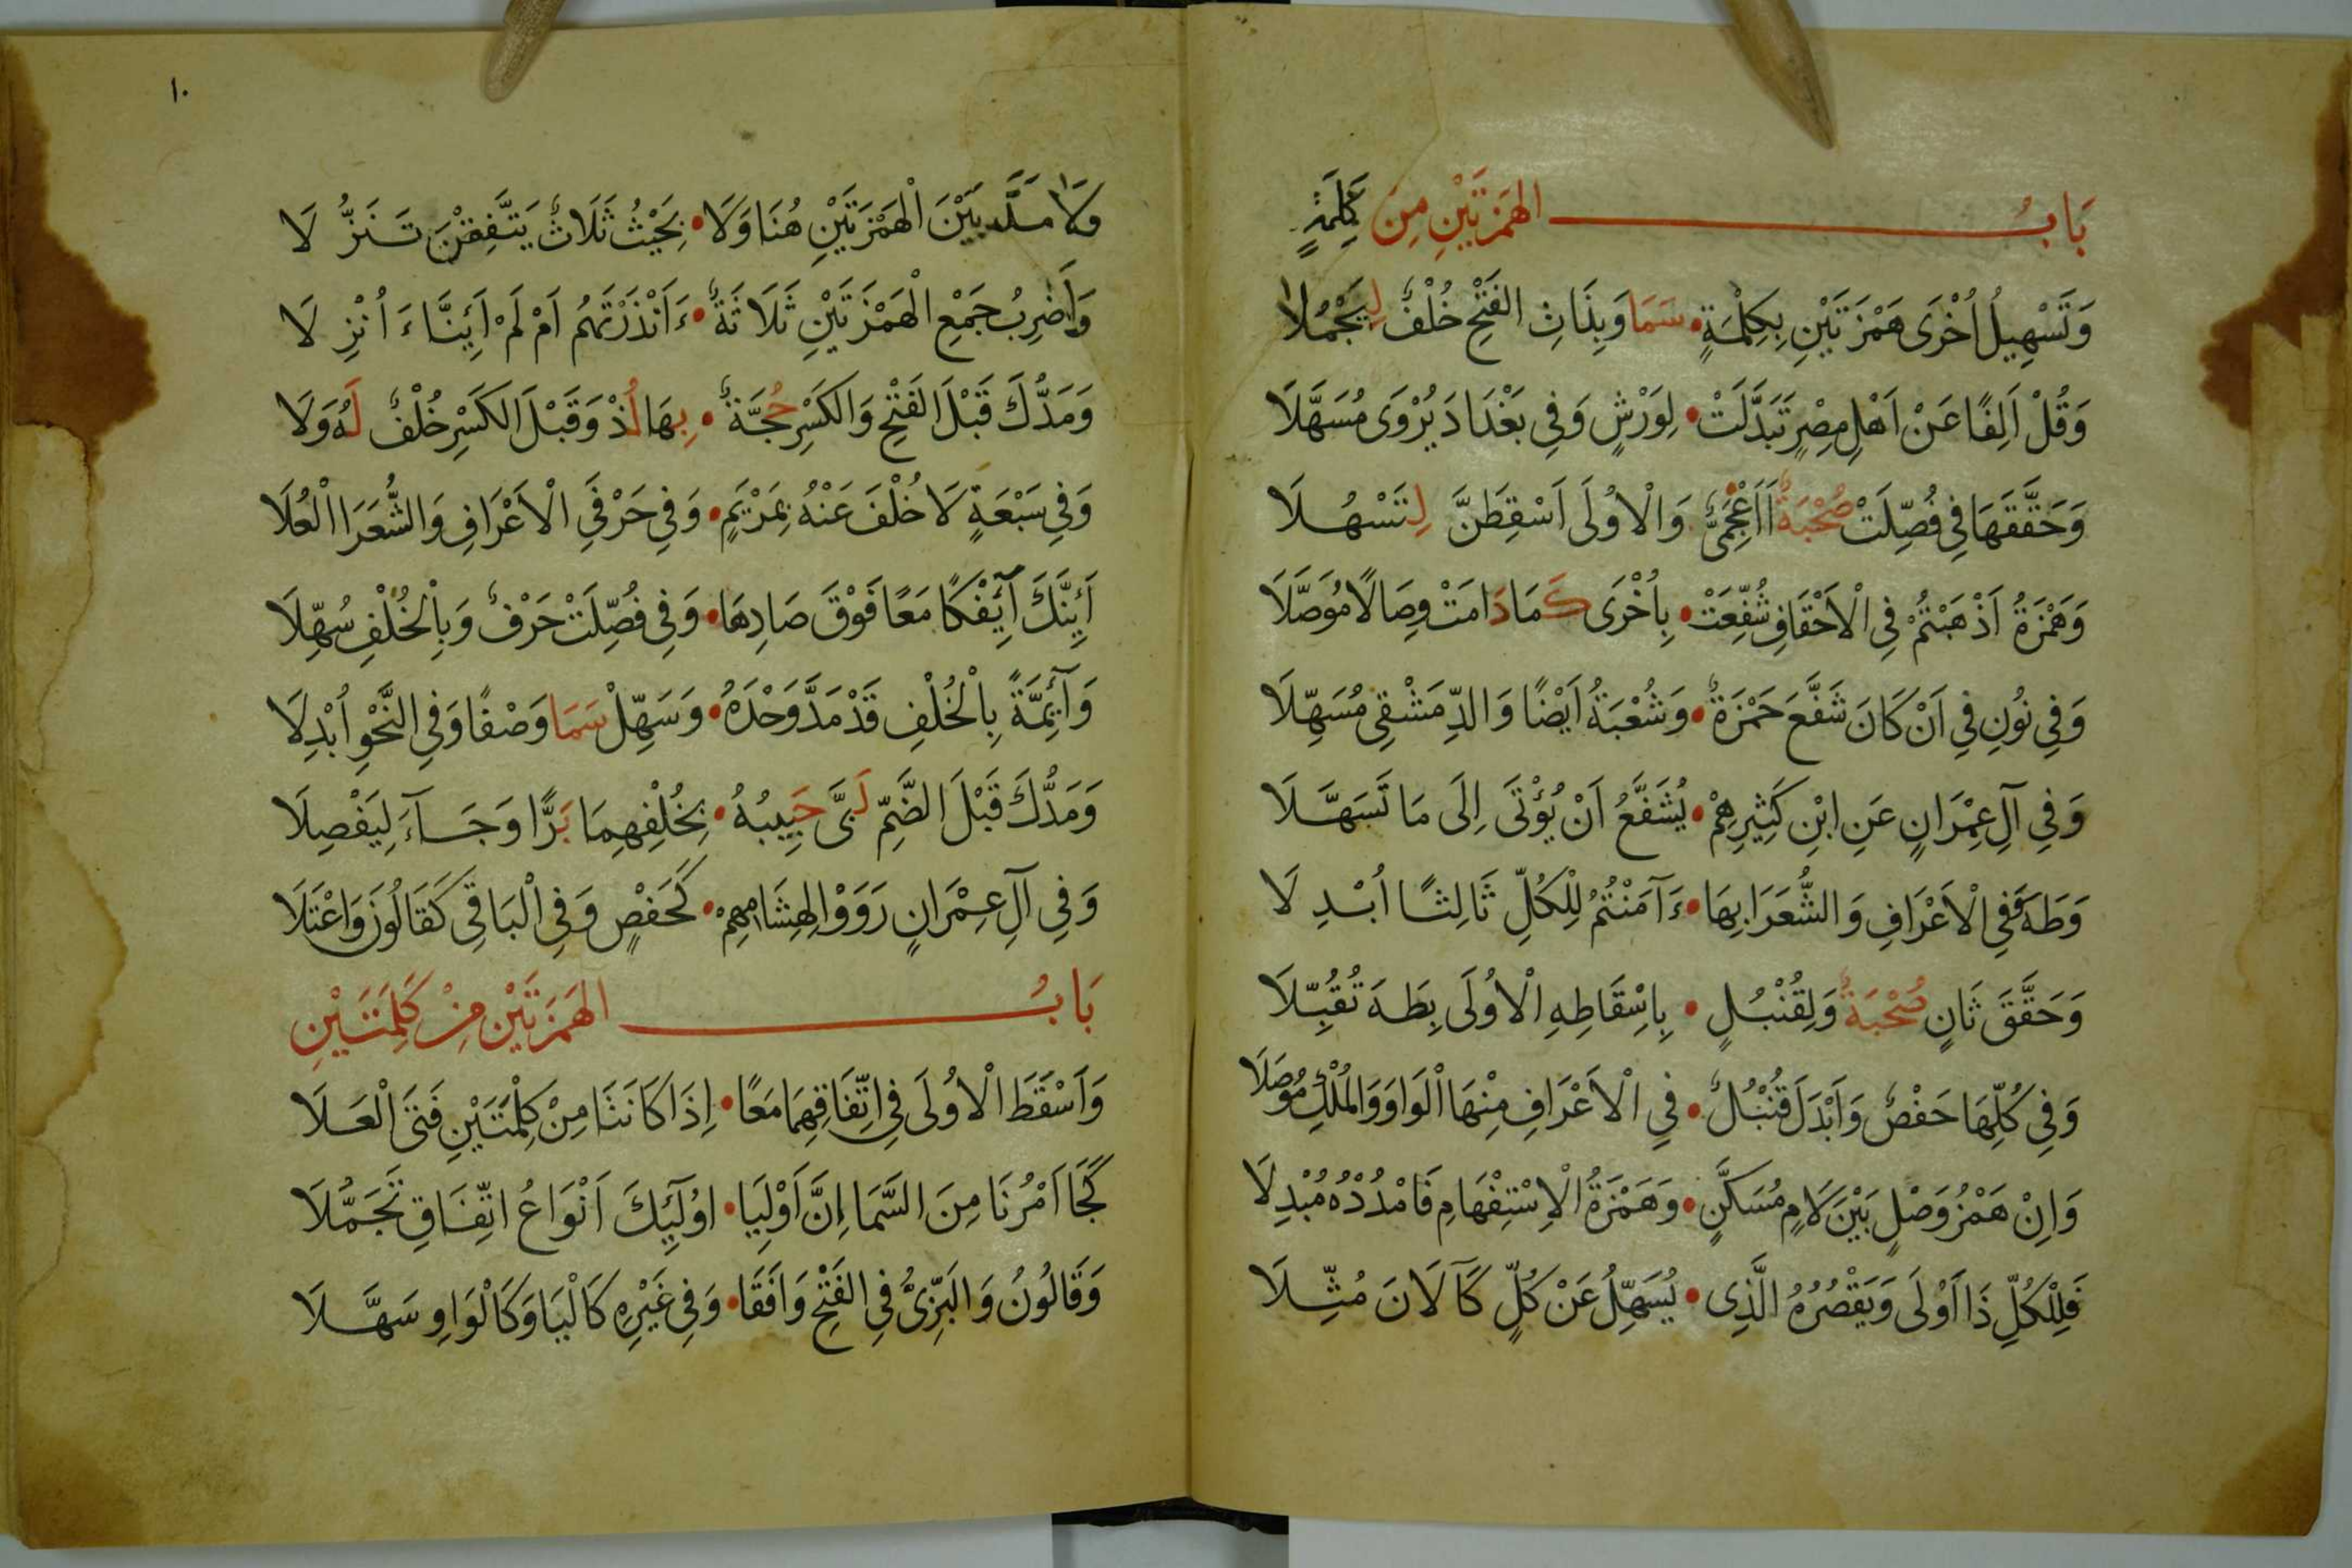 بَابُ الهَمْزَتَيْنِ مِنْ كَلِمَةٍ
وَتَسْهِيلُ اُخْرَى هَمْزَتَيْنِ بِكِلْمَةٍ • سَمَا وَبِذَاتِ الفَتْحِ خُلْفٌ لِيَجْمُلَا
وَقُلْ اَلِفًا عَنْ اَهْلِ مِصْرٍ تَبَدَّلَتْ • لِوَرْشٍ وَفِي بَغْدَادَ يُرْوَى مُسَهَّلَا
وَحَقَّقَهَا فِي فُصِّلَتْ صُحْبَةٌ اَاَعْجَمِيٌّ • وَالْاُولَى اَسْقِطَنَّ لِتَسْهُلَا
وَهَمْزَةُ اَذْهَبْتُمْ فِي الْاَحْقَافِ شُفِّعَتْ • بِاُخْرَى كَمَا دَامَتْ وِصَالًا مُوَصَّلَا
وَفِي نُونِ فِي اَنْ كَانَ شَفَّعَ حَمْزَةٌ • وَشُعْبَةُ اَيْضًا وَالدِّمَشْقِي مُسَهِّلَا
وَفِي آلِ عِمْرَانٍ عَنِ ابْنِ كَثِيرِهِمْ • يُشَفَّعُ اَنْ يُؤْتَى اِلَى مَا تَسَهَّلَا
وَطَهَ وَفِي الْاَعْرَافِ وَالشُّعَرَا بِهَا • ءَآمَنْتُمُ لِلْكُلِّ ثَالِثًا اُبْدِلَا
وَحَقَّقَ ثَانٍ صُحْبَةٌ وَلِقُنْبُلٍ • بِاِسْقَاطِهِ الْاُولَى بِطَهَ تُقُبِّلَا
وَفِي كُلِّهَا حَفْصٌ وَاَبْدَلَ قُنْبُلٌ • فِي الْاَعْرَافِ مِنْهَا الْوَاوَ وَالْمُلْكِ مُوصِلَا
وَاِنْ هَمْزُ وَصْلٍ بَيْنَ لَامٍ مُسَكَّنٍ • وَهَمْزَةُ الْاِسْتِفْهَامِ فَامْدُدْهُ مُبْدِلَا
فَلِلْكُلِّ ذَا اَوْلَى وَيَقْصُرُهُ الَّذِى • يُسَهِّلُ عَنْ كُلٍّ كَآلَانَ مُثِّلَا
١٠
وَلَا مَدَّ بَيْنَ الْهَمْزَتَيْنِ هُنَا وَلَا • بِحَيْثُ ثَلَاثٌ يَتَّفِقْنَ تَنَزُّلَا
وَاَضْرِبُ جَمْعِ الْهَمْزَتَيْنِ ثَلَاثَةٌ • ءَاَنْذَرْتَهُمُ اَمْ لَمْ اَئِنَّا ءَاُنْزِلَا
وَمَدُّكَ قَبْلَ الفَتْحِ وَالكَسْرِ حُجَّةٌ • بِهَا لُذْ وَقَبْلَ الكَسْرِ خُلْفٌ لَهُ وَلَا
وَفِي سَبْعَةٍ لَا خُلْفَ عَنْهُ بِمَرْيَمٍ • وَفِي حَرْفَيِ الْاَعْرَافِ وَالشُّعَرَا الْعُلَا
اَئِنَّكَ آئِفْكًا مَعًا فَوْقَ صَادِهَا • وَفِي فُصِّلَتْ حَرْفٌ وَبِالْخُلْفِ سُهِّلَا
وَآئِمَّةً بِالْخُلْفِ قَدْ مَدَّ وَحْدَهُ • وَسَهِّلْ سَمَا وَصْفًا وَفِي النَّحْوِ اُبْدِلَا
وَمَدُّكَ قَبْلَ الضَّمِّ لَبَّى حَبِيبُهُ • بِخُلْفِهِمَا بَرًّا وَجَاءَ لِيَفْصِلَا
وَفِي آلِ عِمْرَانٍ رَوَوْا لِهِشَامِهِمْ • كَحَفْصٍ وَفِي الْبَاقِي كَقَالُونَ وَاعْتَلَا
بَابُ الهَمْزَتَيْنِ مِنْ كَلِمَتَيْنِ
وَاَسْقَطَ الْاُولَى فِي اتِّفَاقِهِمَا مَعًا • اِذَا كَانَتَا مِنْ كِلْمَتَيْنِ فَتَى الْعَلَا
كَجَا اَمْرُنَا مِنَ السَّمَا اِنَّ اَوْلِيَا • اُولَئِكَ اَنْوَاعُ اتِّفَاقٍ تَجَمَّلَا
وَقَالُونُ وَالبَزِّيُّ فِي الفَتْحِ وَافَقَا • وَفِي غَيْرِهِ كَالْيَا وَكَالْوَاوِ سَهَّلَا